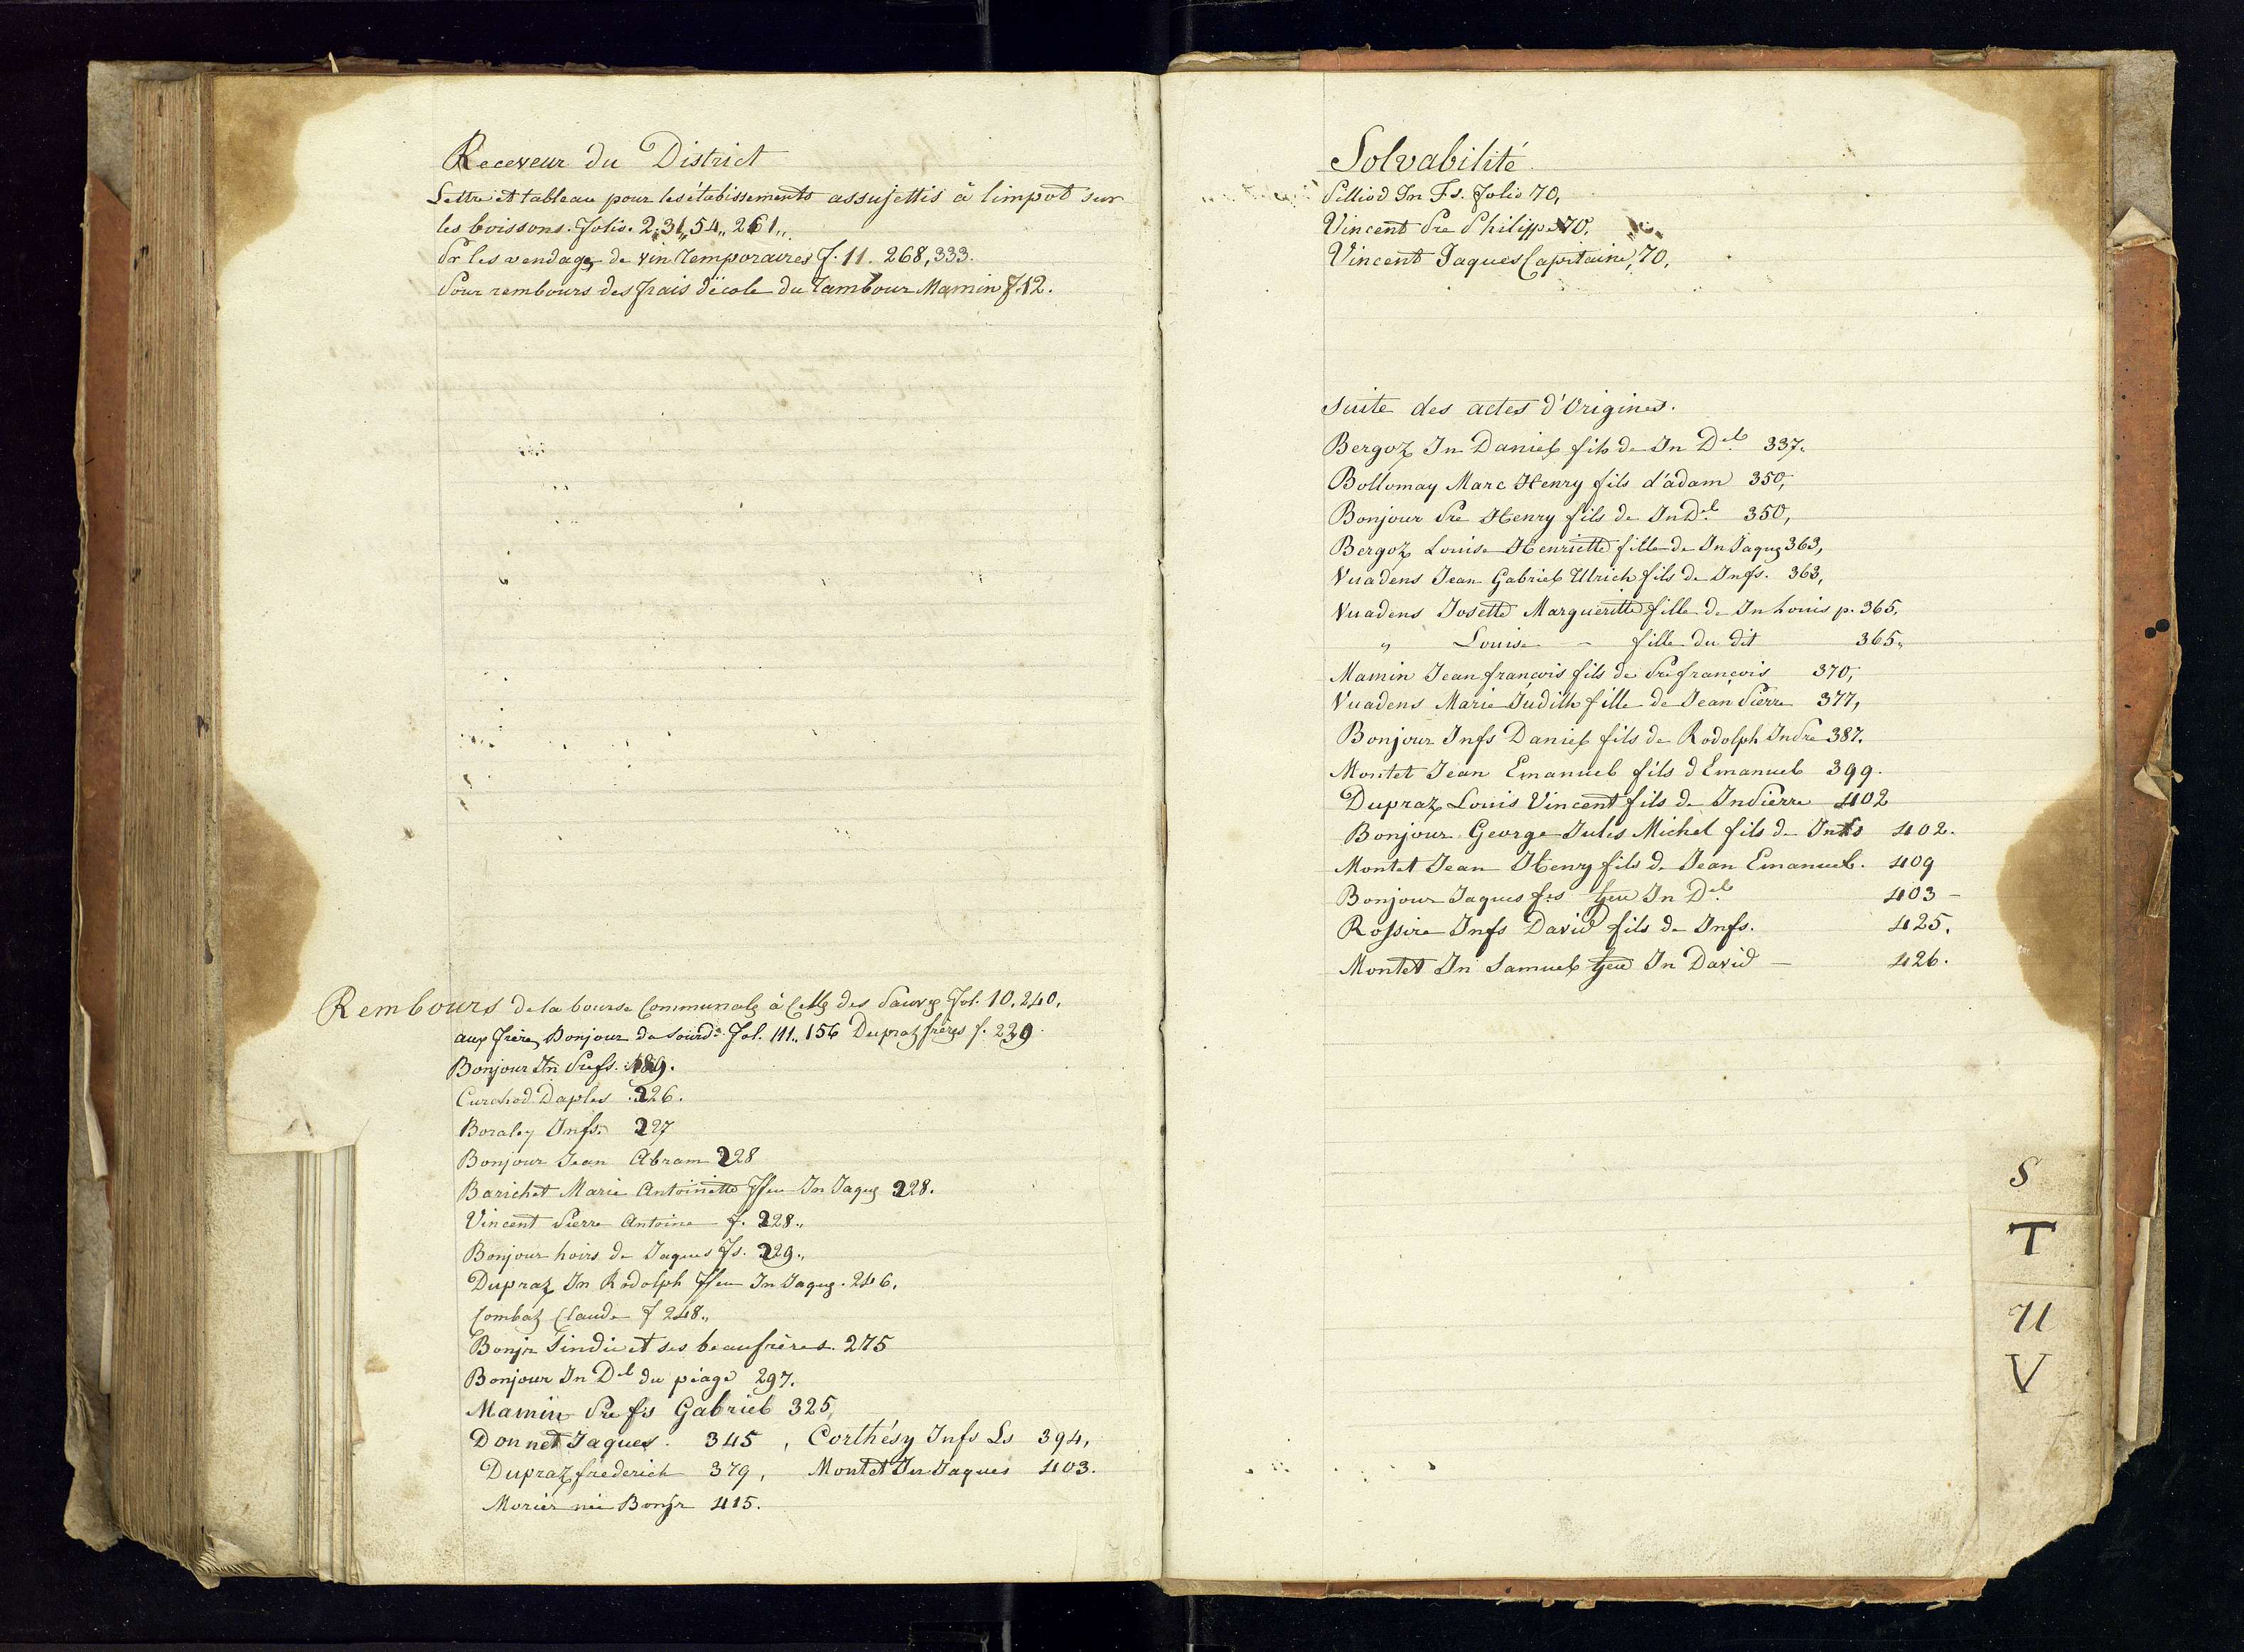 Receveur du District
Lettre et tableau pour les étabissements assujettis à limpot sur
les boissons. Folio. 2,31,,54,, 261,,
Pr les vendages de vin Temporaires f. 11. 268, 333.
Pour rembours des frais décole du Tambour Mamin f. 12.
Rembours de la bourse Communale à Celle des Pauvres Fol. 10. 240.
aux frères Bonjour da Fol. 111.. 156 Dupraz frères f. 229.
Bonjour Jn Prefs. 189.
Curchod Daples 226.
Boraley Jnfs. 227
Bonjour Jean Abram 228
Barichet Marie Antoinette ffeu Jn Jaques 228.
Vincent Pierre Antoine f. 228.,
Bonjour hoirs de Jaques fs. 229.,
Dupraz Jn Rodolph ffeu Jn Jaques. 246.
Combaz Claude f 248.,
Bonjr Sindic et ses beaufrères. 275
Bonjour Jn Del du péage 297.
Mamin Pre fs Gabriel 325,
Donnet Jaques. 345 , Corthésy Jnfs Ls 394,
Dupraz frederich 379, Montet Jn Jaques 403.
Morier née Bonjr 415.
Solvabilité
Pilliod Jn Fs. Folio 70,
Vincent Pre Philippe 70,
Vincent Jaques Capitaine, 70,
Suite des actes d'Origines.
Bergoz Jn Daniel fils de Jn Del 337.
Bollomay Marc Henry fils d'adam 350,
Bonjour Pre Henry fils de Jn Del 350,
Bergoz Louise Henriette fille de Jn Jaques 363,
Vuadens Jean Gabriel Ulrich fils de Jnfs. 363,
Vuadens Josette Margueritte fille de Jn Louis p. 365,
„ Louise - fille du dit 365,
Mamin Jean françois fils de Pre françois 370,
Vuadens Marie Judith fille de Jean Pierre 377,
Bonjour Jnfs Daniel fils de Rodolph Jn Pre 387.
Montet Jean Emanuel fils d Emanuel 399.
Dupraz Louis Vincent fils de Jn Pierre 402
Bonjour George Jules Michel fils de Jnfs 402.
Montet Jean Henry fils de Jean Emanuel. 409
Bonjour Jaques fs feu Jn Del 403 -
Rossire Jnfs David fils de Jnfs. 425.
Montet Jn Samuel feu Jn David - 426.
S
T
U
V